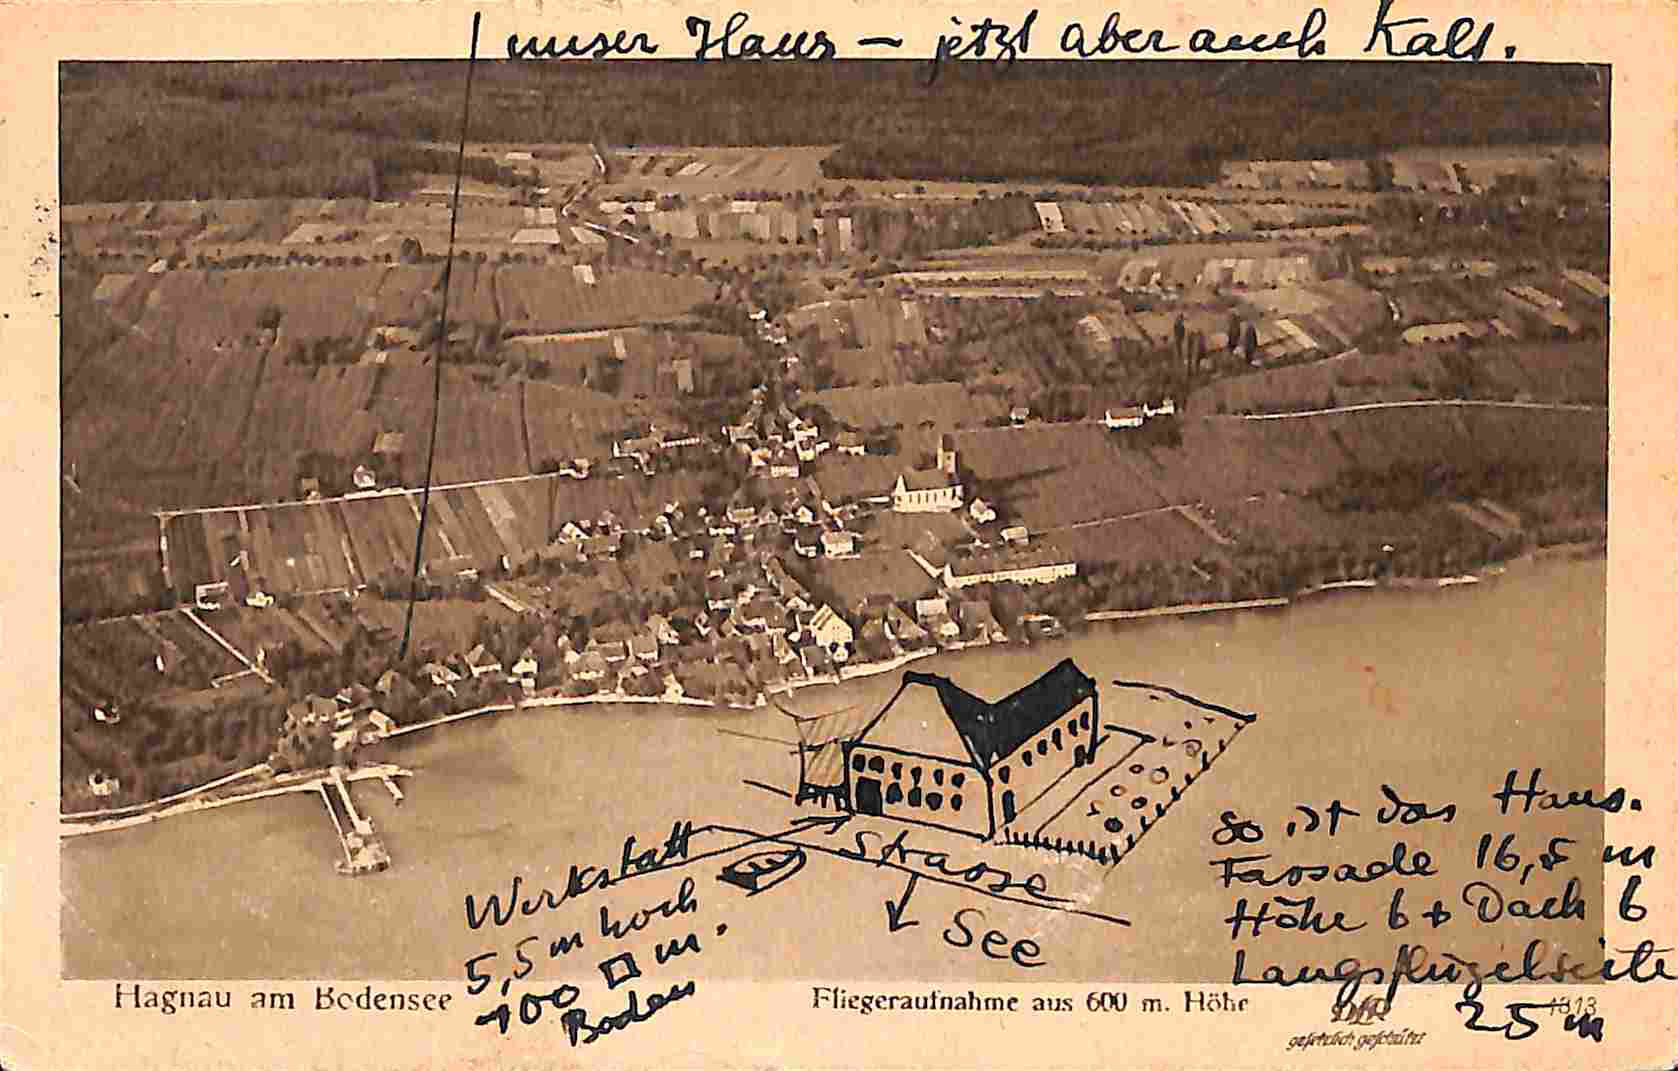 unser Haus – jetzt aber auch Kalt.
Strasse
See
Werkstatt
5,5 m hoch
100 □ m.
Boden
so ist das Haus.
Fassade 16,5 m
Höhe 6 + Dach 6
Langsflügelseite
25 m
Hagnau am Bodensee
Fliegeraufnahme aus 600 m. Höhe
1313
gesetzlich geschützt